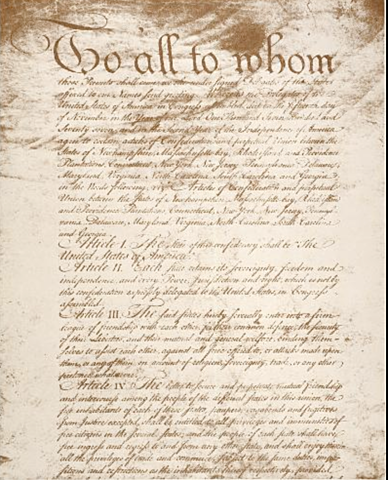 To all to whom
these Presents shall come we the under signed Delegates of the States
affixed to our Names send greeting. Whereas the Delegates of the
United States of America in Congress assembled did on the fifteenth day
of November in the Year of our Lord One Thousand Seven Hundred and
Seventy seven, and in the Second Year of the Independence of America
agree to certain articles of Confederation and perpetual Union between the
States of Newhampshire, Massachusetts-bay, Rhodeisland and Providence
Plantations, Connecticut, New York, New Jersey, Pennsylvania, Delaware,
Maryland, Virginia, North-Carolina, South-Carolina and Georgia
in the Words following, viz. Articles of Confederation and perpetual
Union between the states of Newhampshire, Massachusetts-bay, Rhodeisland
and Providence Plantations, Connecticut, New-York, New-Jersey, Pennsyl-
vania, Delaware, Maryland, Virginia, North-Carolina, South-Carolina
and Georgia.
Article I. The Stile of this confederacy shall be "The
United States of America."
Article II. Each state retains its sovereignty, freedom and
independence, and every Power, Jurisdiction and right, which is not by
this confederation expressly delegated to the United States, in Congress
assembled.
Article III. The said states hereby severally enter into a firm
league of friendship with each other, for their common defence, the security
of their Liberties, and their mutual and general welfare, binding them-
selves to assist each other, against all force offered to, or attacks made upon
them, or any of them, on account of religion, sovereignty, trade, or any other
pretence whatever.
Article IV. The better to secure and perpetuate mutual friendship
and intercourse among the people of the different states in this union, the
free inhabitants of each of these states, paupers, vagabonds and fugitives
from Justice excepted, shall be entitled to all privileges and immunities of
free citizens in the several states; and the people of each state shall have
free ingress and regress to and from any other state, and shall enjoy therein
all the privileges of trade and commerce, subject to the same duties, impo-
sitions and restrictions as the inhabitants thereof respectively, provided